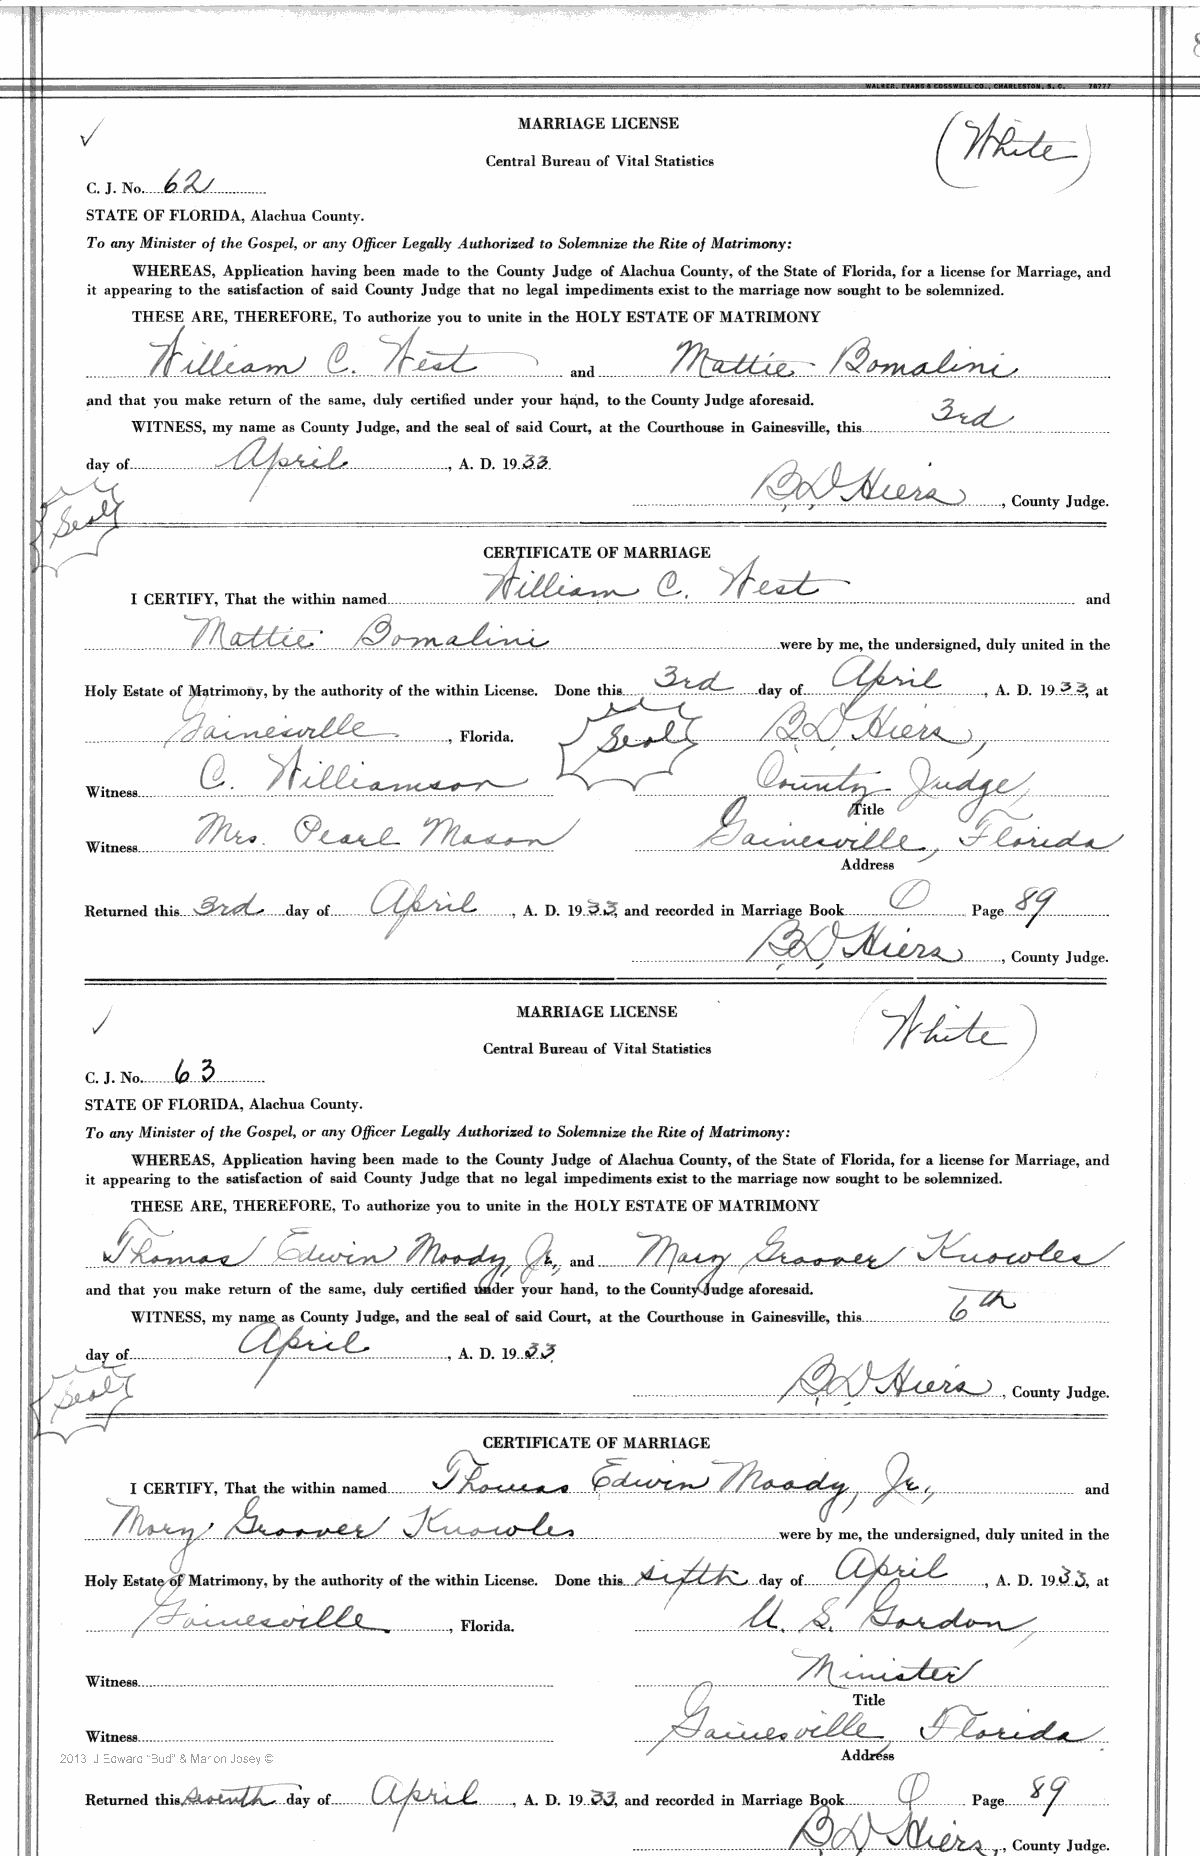 WALKER, EVANS & COGSWELL CO., CHARLESTON, S. C. 78777
MARRIAGE LICENSE
(White)
Central Bureau of Vital Statistics
C. J. No. 62
STATE OF FLORIDA, Alachua County.
To any Minister of the Gospel, or any Officer Legally Authorized to Solemnize the Rite of Matrimony:
WHEREAS, Application having been made to the County Judge of Alachua County, of the State of Florida, for a license for Marriage, and
it appearing to the satisfaction of said County Judge that no legal impediments exist to the marriage now sought to be solemnized.
THESE ARE, THEREFORE, To authorize you to unite in the HOLY ESTATE OF MATRIMONY
William C. West and Mattie Bomalini
and that you make return of the same, duly certified under your hand, to the County Judge aforesaid.
WITNESS, my name as County Judge, and the seal of said Court, at the Courthouse in Gainesville, this 3rd
day of April, A. D. 1933.
B. D. Hiers, County Judge.
Seal
CERTIFICATE OF MARRIAGE
I CERTIFY, That the within named William C. West and
Mattie Bomalini were by me, the undersigned, duly united in the
Holy Estate of Matrimony, by the authority of the within License. Done this 3rd day of April, A. D. 1933, at
Gainesville, Florida. Seal B. D. Hiers,
Witness C. Williamson County Judge,
Title
Witness Mrs. Pearl Mason Gainesville, Florida
Address
Returned this 3rd day of April, A. D. 1933, and recorded in Marriage Book O Page 89
B. D. Hiers, County Judge.
MARRIAGE LICENSE
(White)
Central Bureau of Vital Statistics
C. J. No. 63
STATE OF FLORIDA, Alachua County.
To any Minister of the Gospel, or any Officer Legally Authorized to Solemnize the Rite of Matrimony:
WHEREAS, Application having been made to the County Judge of Alachua County, of the State of Florida, for a license for Marriage, and
it appearing to the satisfaction of said County Judge that no legal impediments exist to the marriage now sought to be solemnized.
THESE ARE, THEREFORE, To authorize you to unite in the HOLY ESTATE OF MATRIMONY
Thomas Edwin Moody, Jr., and Mary Groover Knowles
and that you make return of the same, duly certified under your hand, to the County Judge aforesaid.
WITNESS, my name as County Judge, and the seal of said Court, at the Courthouse in Gainesville, this 6th
day of April, A. D. 1933.
B. D. Hiers, County Judge.
Seal
CERTIFICATE OF MARRIAGE
I CERTIFY, That the within named Thomas Edwin Moody, Jr., and
Mary Groover Knowles were by me, the undersigned, duly united in the
Holy Estate of Matrimony, by the authority of the within License. Done this sixth day of April, A. D. 1933, at
Gainesville, Florida. U. S. Gordon,
Witness Minister
Title
Witness Gainesville, Florida.
2013 J Edward "Bud" & Marion Josey © Address
Returned this seventh day of April, A. D. 1933, and recorded in Marriage Book O Page 89
B. D. Hiers, County Judge.